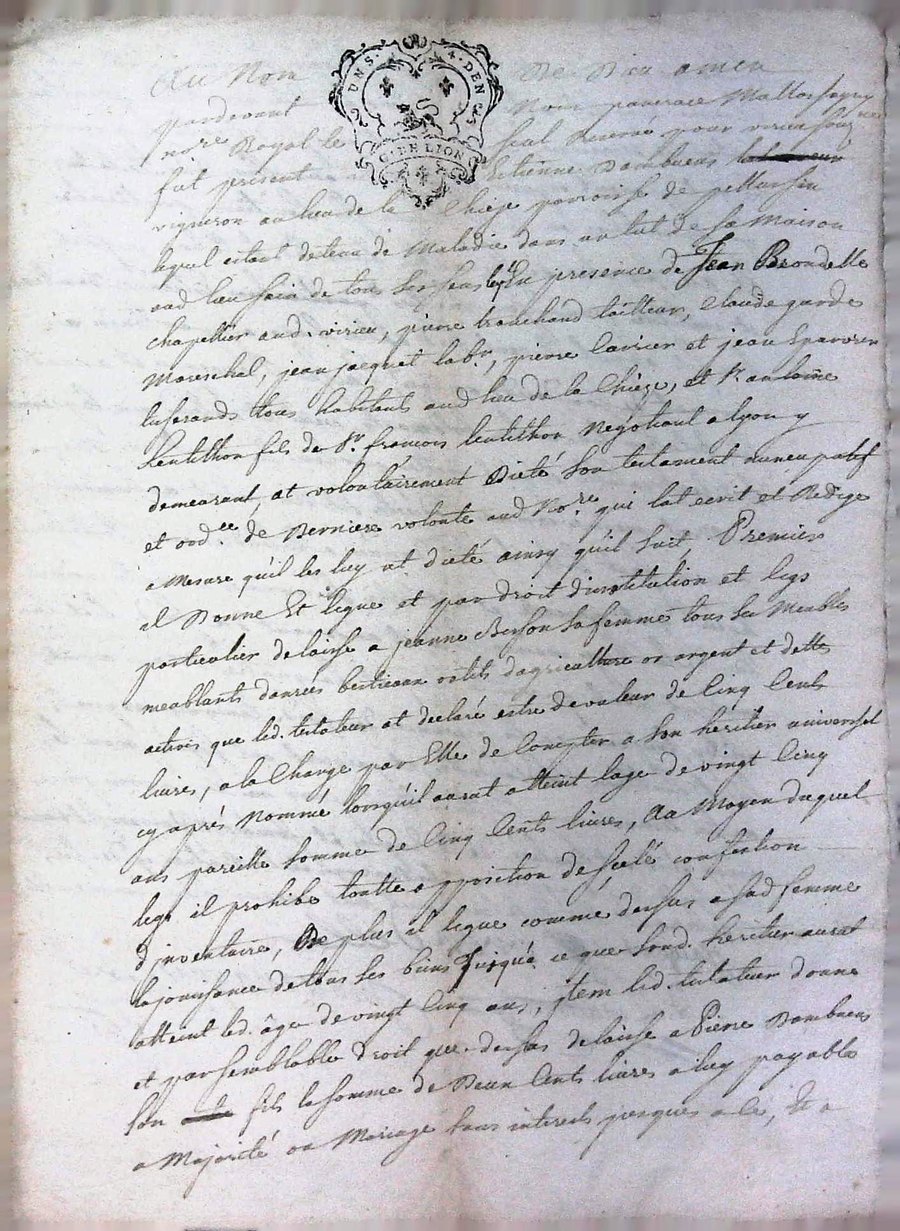 UN S. 4. DEN
G. DE LION
Au Nom De Dieu amen
pardevant Nous
no.re Royal le pour virieu
fut present Etienne Dambuens
vigneron au lieu de la Chieze parroisse de pellussin
lequel estant detenu de Maladie dans un lit de sa Maison
aud lieu sain de tous ses sens En presence de Jean Brondelle
chapellier aud. virieu, pierre tranchand tailleur, Claude garde
Mareschal, jean jacquet lab.r, pierre et jean
tisserands tous habitants aud lieu de la Chieze, et S.r antoine
Lentillon fils de S.r françois Lentillon Negotiant a lyon y
demeurant, at volontairement Dicté son testament nuncupatif
et ord.ce de Derniere volonté aud No.re qui lat ecrit et Redigé
a Mesure qu'il les luy at dicté ainsy quil suit, Premier
il Donne Et legue et par droit d'institution et legs
particulier delaisse a jeanne Berson sa femme tous ses Meubles
meublants danrées bestieaux outils d'agriculture or argent et dettes
actives que led. testateur at declaré estre de valeur de Cinq Cents
livres, a la Charge par Elle de Compter a son heritier universel
cy aprés Nommé lorsqu'il aurat atteint lage de vingt Cinq
ans pareille somme de Cinq Cents livres, Au Moyen duquel
legs il prohibe toutte opposition de scelé confection
d'inventaire, De plus il legue comme dessus a sad femme
la jouissance de tous ses biens Jusqué a ce que sond. heritier aurat
atteint led. âge de vingt Cinq ans, jtem led. testateur donne
et par semblable droit que dessus delaisse a Pierre Dambuens
son fils la somme de Deux Cents livres a luy payable
a Majorité ou Mariage sans interets jusques a ce, Et a